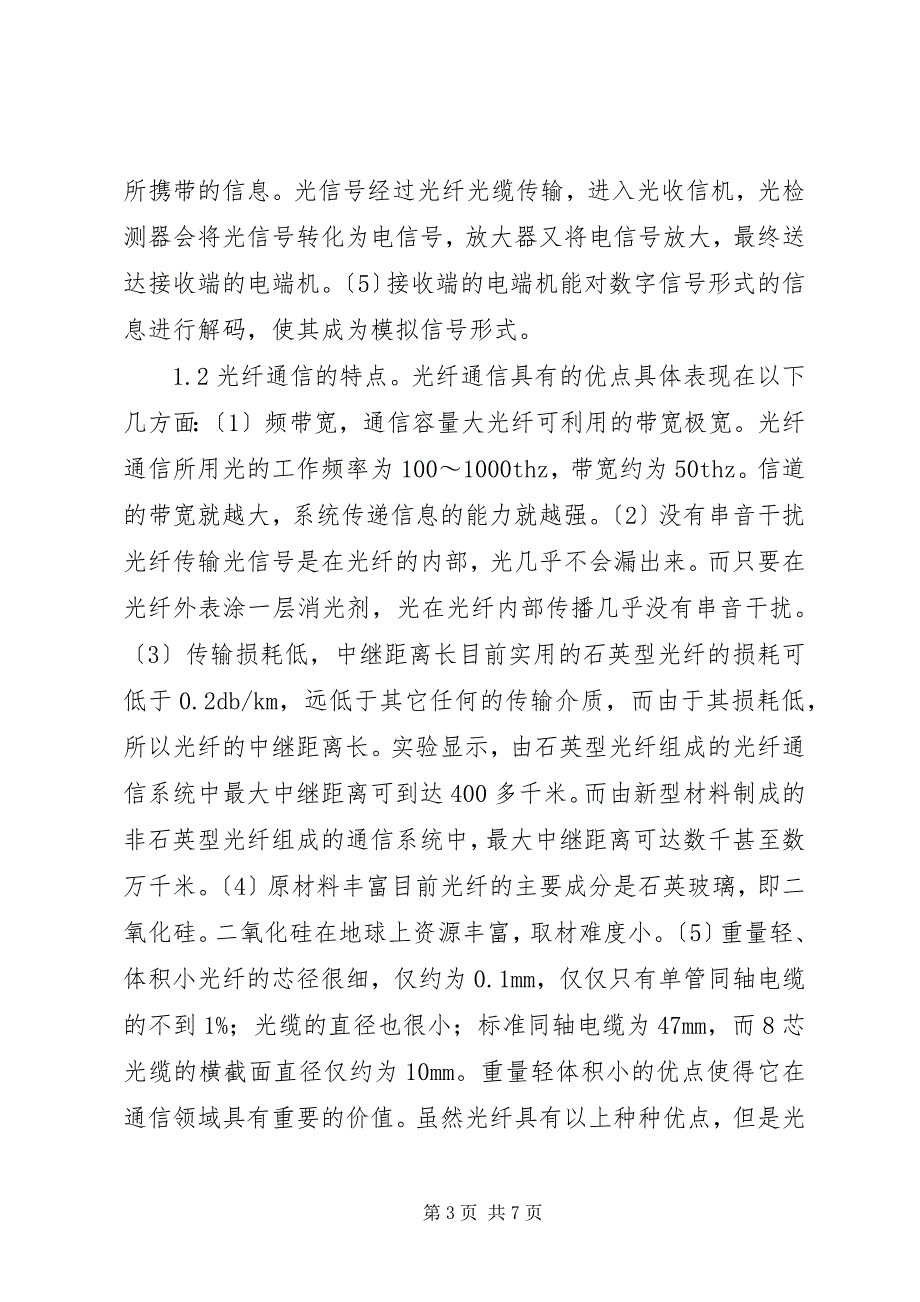 所携带的信息。光信号经过光纤光缆传输，进入光收信机，光检
测器会将光信号转化为电信号，放大器又将电信号放大，最终送
达接收端的电端机。〔5〕接收端的电端机能对数字信号形式的信
息进行解码，使其成为模拟信号形式。
1.2 光纤通信的特点。光纤通信具有的优点具体表现在以下
几方面：〔1〕频带宽，通信容量大光纤可利用的带宽极宽。光纤
通信所用光的工作频率为 100～1000thz，带宽约为 50thz。信道
的带宽就越大，系统传递信息的能力就越强。〔2〕没有串音干扰
光纤传输光信号是在光纤的内部，光几乎不会漏出来。而只要在
光纤外表涂一层消光剂，光在光纤内部传播几乎没有串音干扰。
〔3〕传输损耗低，中继距离长目前实用的石英型光纤的损耗可
低于 0.2db/km，远低于其它任何的传输介质，而由于其损耗低，
所以光纤的中继距离长。实验显示，由石英型光纤组成的光纤通
信系统中最大中继距离可到达 400 多千米。而由新型材料制成的
非石英型光纤组成的通信系统中，最大中继距离可达数千甚至数
万千米。〔4〕原材料丰富目前光纤的主要成分是石英玻璃，即二
氧化硅。二氧化硅在地球上资源丰富，取材难度小。〔5〕重量轻、
体积小光纤的芯径很细，仅约为 0.1mm，仅仅只有单管同轴电缆
的不到 1%；光缆的直径也很小；标准同轴电缆为 47mm，而 8 芯
光缆的横截面直径仅约为 10mm。重量轻体积小的优点使得它在
通信领域具有重要的价值。虽然光纤具有以上种种优点，但是光
第 3 页 共 7 页